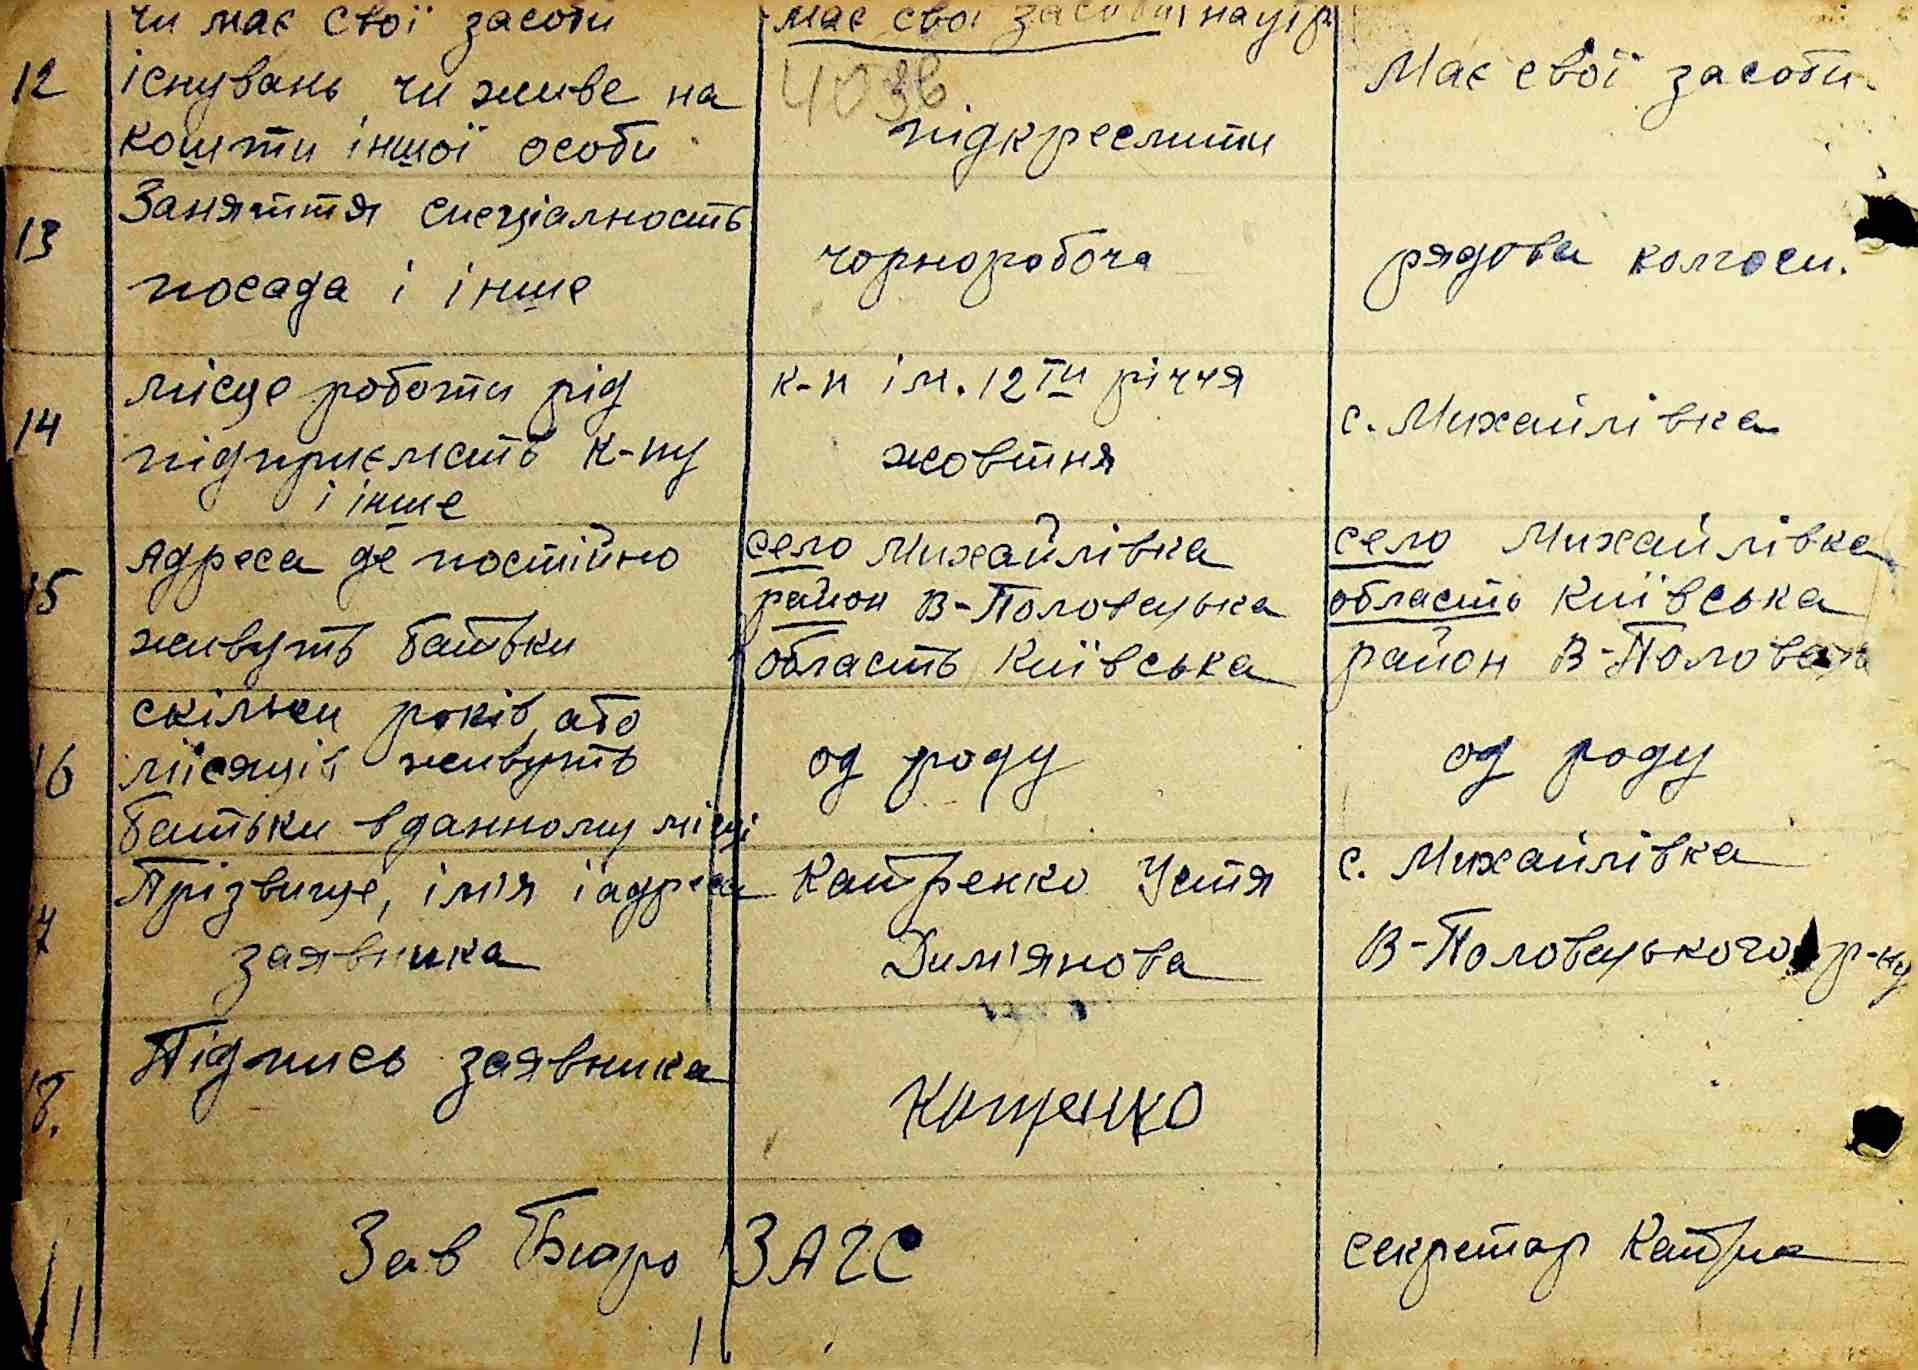 12
чи має свої засоби
існувань чи живе на
кошти іншої особи
має свої засоби
підкреслити
Має свої засоби.
13
Заняття специалность
посада і інше
чорноробоча
рядова колгосп.
14
місце роботи рід
підприємств к-пу
і інше
к-п ім. 12ти річчя
жовтня
с. Михайлівка
15
Адреса де постійно
живуть батьки
село Михайлівка
район В-Половецька
область Київська
село Михайлівка
область Київська
район В-Половець
16
скільки років або
місяців живуть
батьки в данному місці
од роду
од роду
17
Прізвище, ім'я і адреса
заявника
Катренко Устя
Дим'янова
с. Михайлівка
В-Половецького р-ну
18.
Підпись заявника
Зав Бюро ЗАГС
секретар